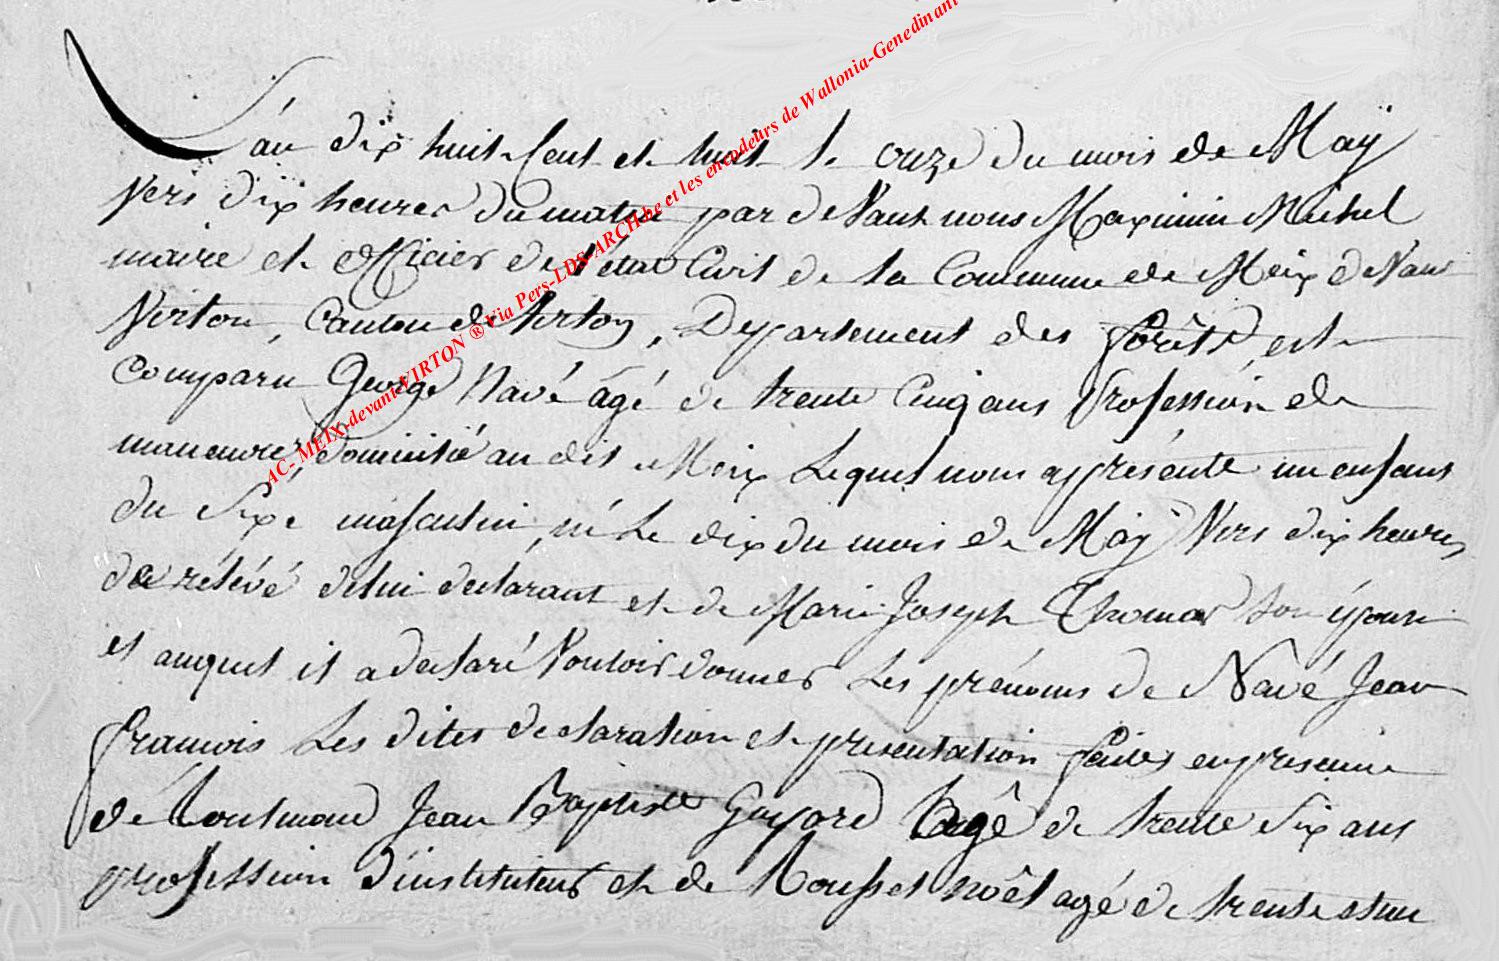 L'án dix huit Cent et huit le onze du mois de Maÿ
Vers dix heures du matin par deVant nous Maximin Michel
maire et officier de l'état Civil de la Commune de Meix deVant
Virton, Canton de Virton, Departement des forêts, est
Comparu George Navé âgé de trente Cinq ans Profession de
manœuvre domicilié au dit Meix Lequel nous a présenté un enfant
du Sexe masculin, né Le dix du mois de Maÿ Vers dix heures
de rélévé de lui declarant et de Marie Joseph Thomas son épouse
et auquel il a declaré Vouloir donner Les prénoms de Navé Jean
francois Les dites declaration et presentation faites en presence
de Jean Baptiste Guyard agê de trente Six ans
profession d'instituteur et de Rousset noêl agé de trente et un
AC- MEIX-devant-VIRTON ® Via Pers-LDS-ARCH.be et les encodeurs de Wallonia-Genedinant